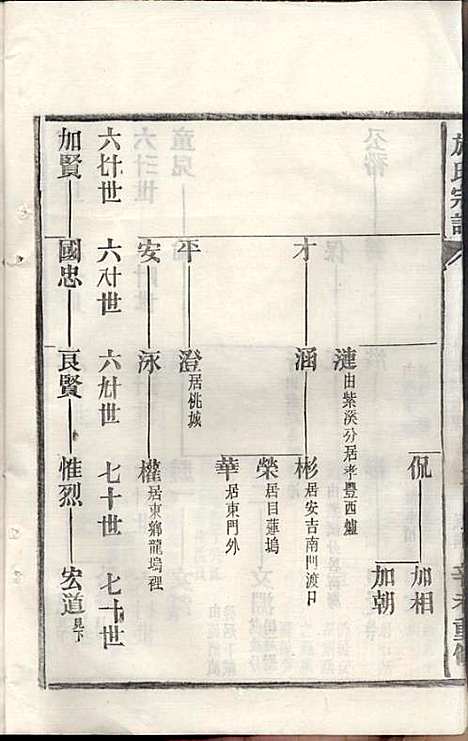 氏宗譜
辛未重修
侃
加相
加朝
漣由紫溪分居孝豐西爐
才
涵
彬居安吉南門渡口
榮居目蓮塢
平
澄居桃城
華居東門外
安
泳
權居東鄉龍塢裡
六十世
六世
六世
七十世
七十世
加賢
國忠
良賢
惟烈
宏道見下